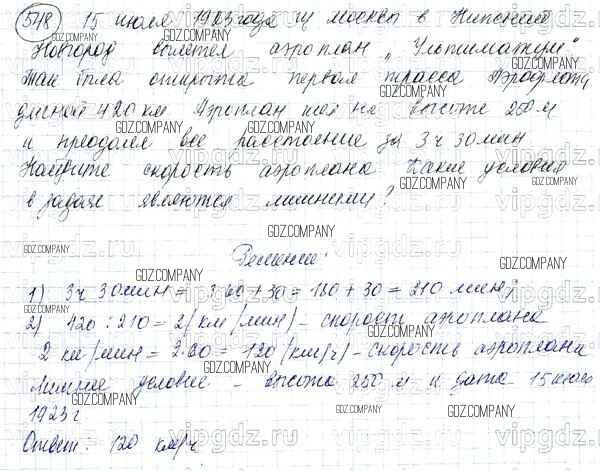 548 15 июля 1923 года из Москвы в Нижний
Новгород вылетел аэроплан "Ультиматум"
Так была открыта первая трасса Аэрофлота
длиной 420 км Аэроплан шел на высоте 250 м
и преодолел все расстояние за 3 ч 30 мин
Найдите скорость аэроплана Какие условия
в задаче являются лишними?
Решение:
1) 3 ч 30 мин = 3·60 + 30 = 180 + 30 = 210 мин
2) 420 : 210 = 2 (км/мин) - скорость аэроплана
2 км/мин = 2·60 = 120 (км/ч) - скорость аэроплана
Лишнее условие - высота 250 м и дата 15 июля
1923 г
Ответ: 120 км/ч
GDZ.COMPANY
vipgdz.ru